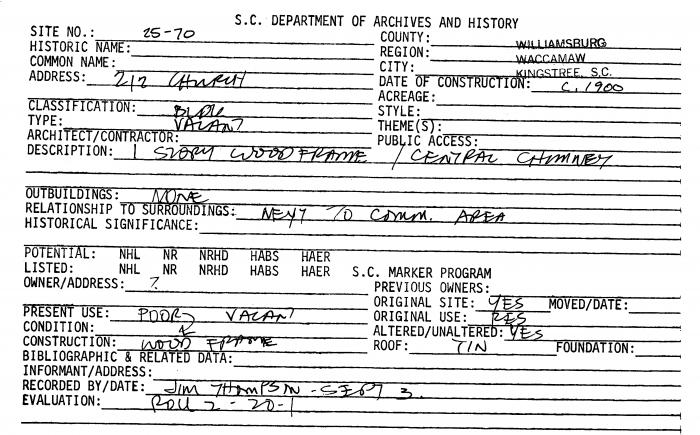 S.C. DEPARTMENT OF ARCHIVES AND HISTORY
SITE NO.: 25-70 COUNTY: WILLIAMSBURG
HISTORIC NAME: REGION: WACCAMAW
COMMON NAME: CITY: KINGSTREE, S.C.
ADDRESS: 212 CHURCH DATE OF CONSTRUCTION: C. 1900
ACREAGE:
CLASSIFICATION: BLDG STYLE:
TYPE: VACANT THEME(S):
ARCHITECT/CONTRACTOR: PUBLIC ACCESS:
DESCRIPTION: 1 STORY WOOD FRAME / CENTRAL CHIMNEY
OUTBUILDINGS: NONE
RELATIONSHIP TO SURROUNDINGS: NEXT TO COMM. AREA
HISTORICAL SIGNIFICANCE:
POTENTIAL: NHL NR NRHD HABS HAER
LISTED: NHL NR NRHD HABS HAER S.C. MARKER PROGRAM
OWNER/ADDRESS: ? PREVIOUS OWNERS:
ORIGINAL SITE: YES MOVED/DATE:
PRESENT USE: POOR VACANT ORIGINAL USE: RES
CONDITION: ALTERED/UNALTERED: YES
CONSTRUCTION: WOOD FRAME ROOF: TIN FOUNDATION:
BIBLIOGRAPHIC & RELATED DATA:
INFORMANT/ADDRESS:
RECORDED BY/DATE: JIM THOMPSON - SEPT 3.
EVALUATION: ROLL 2 - 20-1